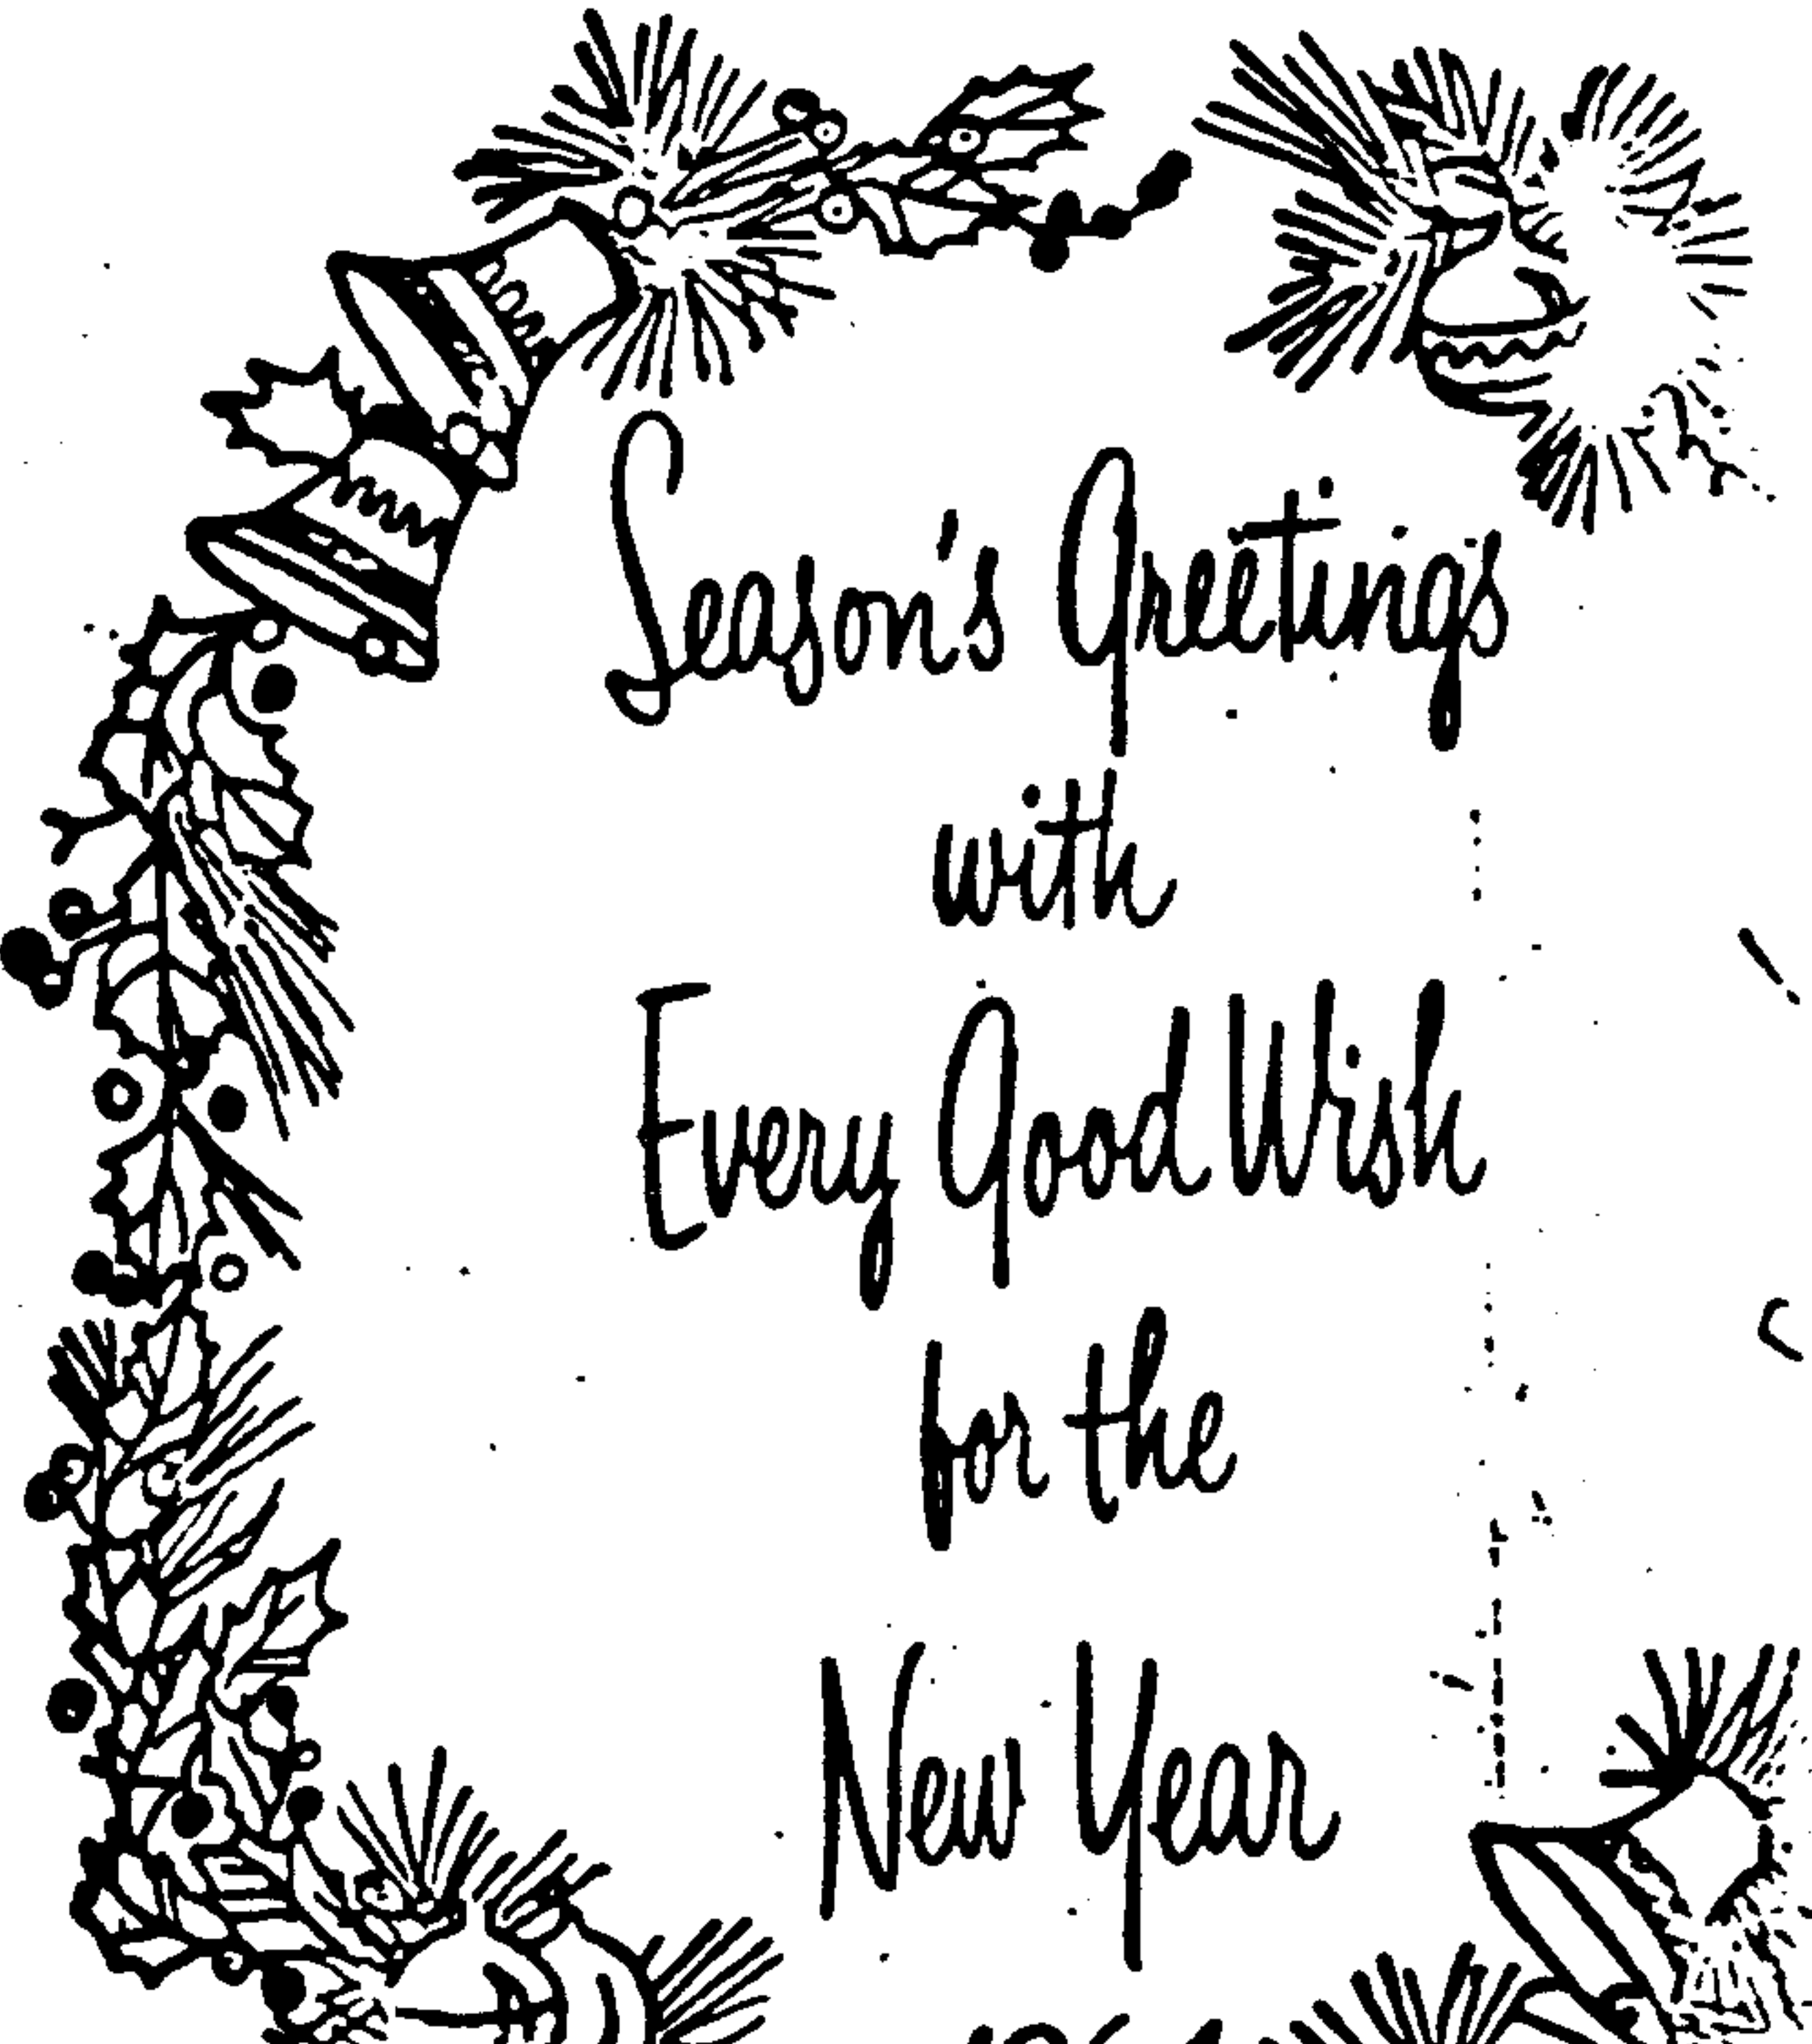 Season's Greetings
with
Every Good Wish
for the
New Year